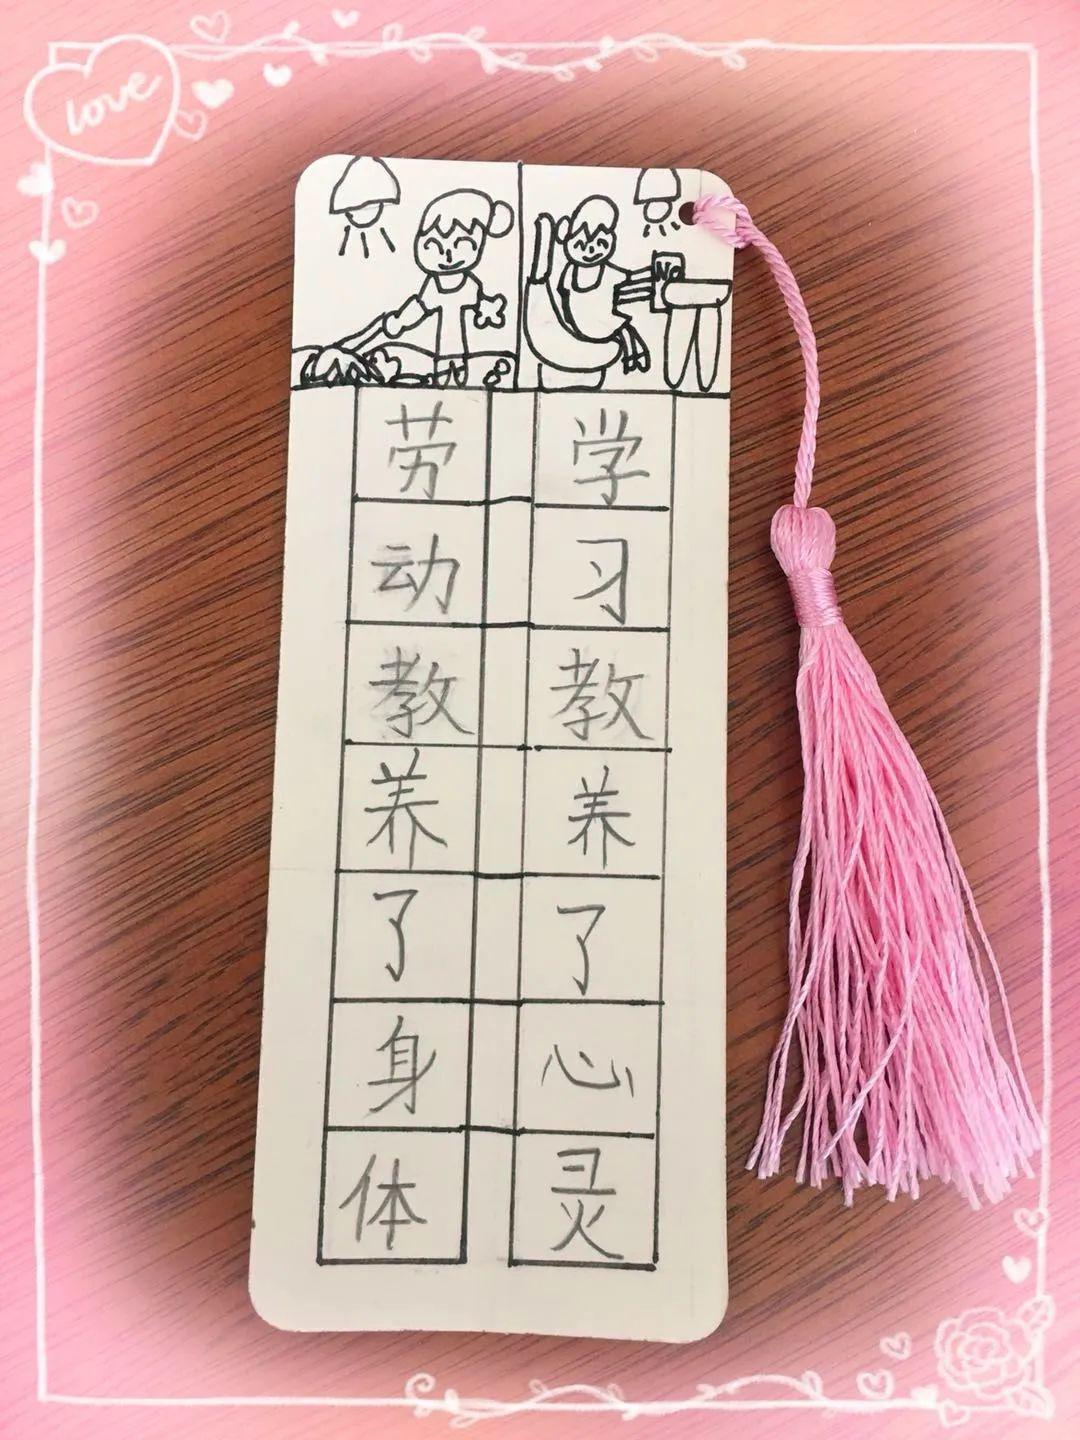 love
劳动教养了身体
学习教养了心灵